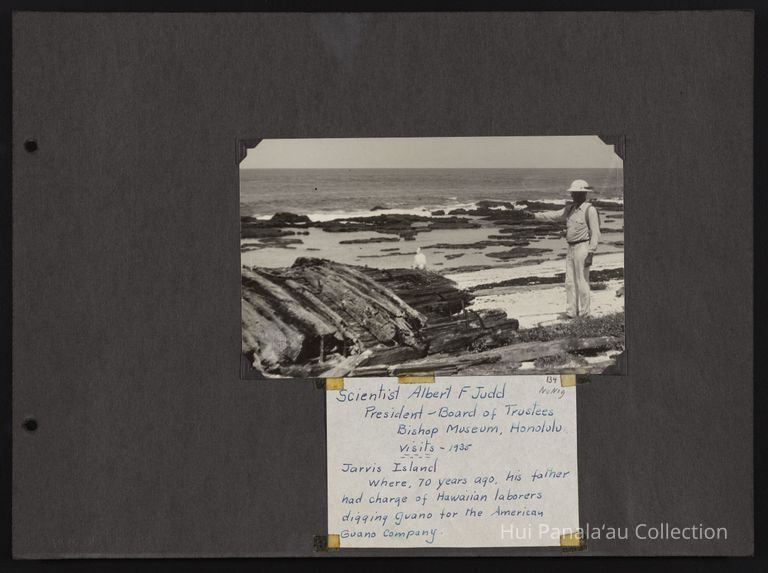 134
Scientist Albert F Judd
President - Board of Trustees
Bishop Museum, Honolulu
Visits - 1935
Jarvis Island
Where, 70 years ago, his father
had charge of Hawaiian laborers
digging guano for the American
Guano Company.
Hui Panalaʻau Collection